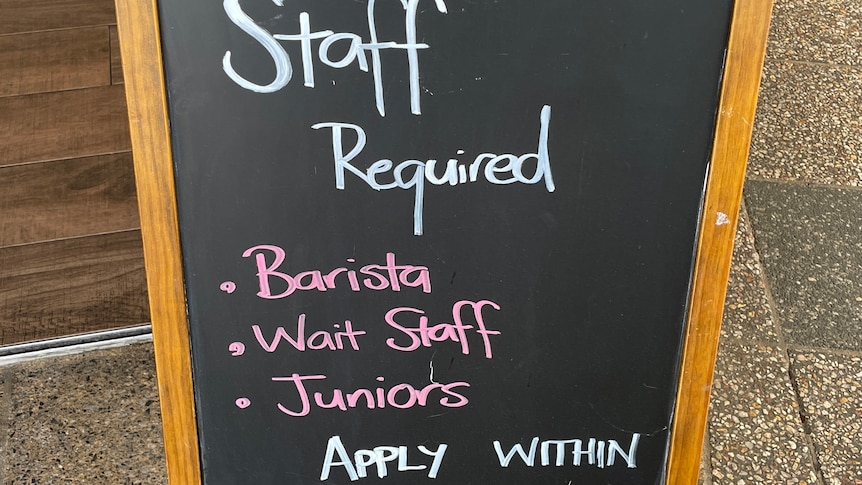 Staff
Required
• Barista
• Wait Staff
• Juniors
APPLY WITHIN